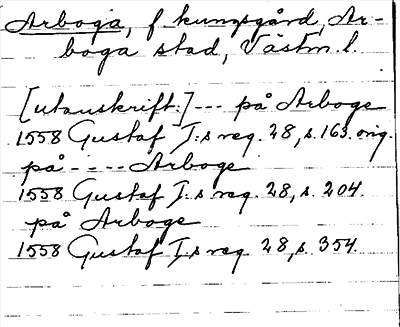 Arboga, f. kungsgård, Ar-
boga stad, Västm. l.
[utanskrift:] --- på Arboge
1558 Gustaf I:s reg. 28, s. 163. orig.
på ---- Arboge
1558 Gustaf I:s reg. 28, s. 204.
på Arboge
1558 Gustaf I:s reg. 28, s. 354.